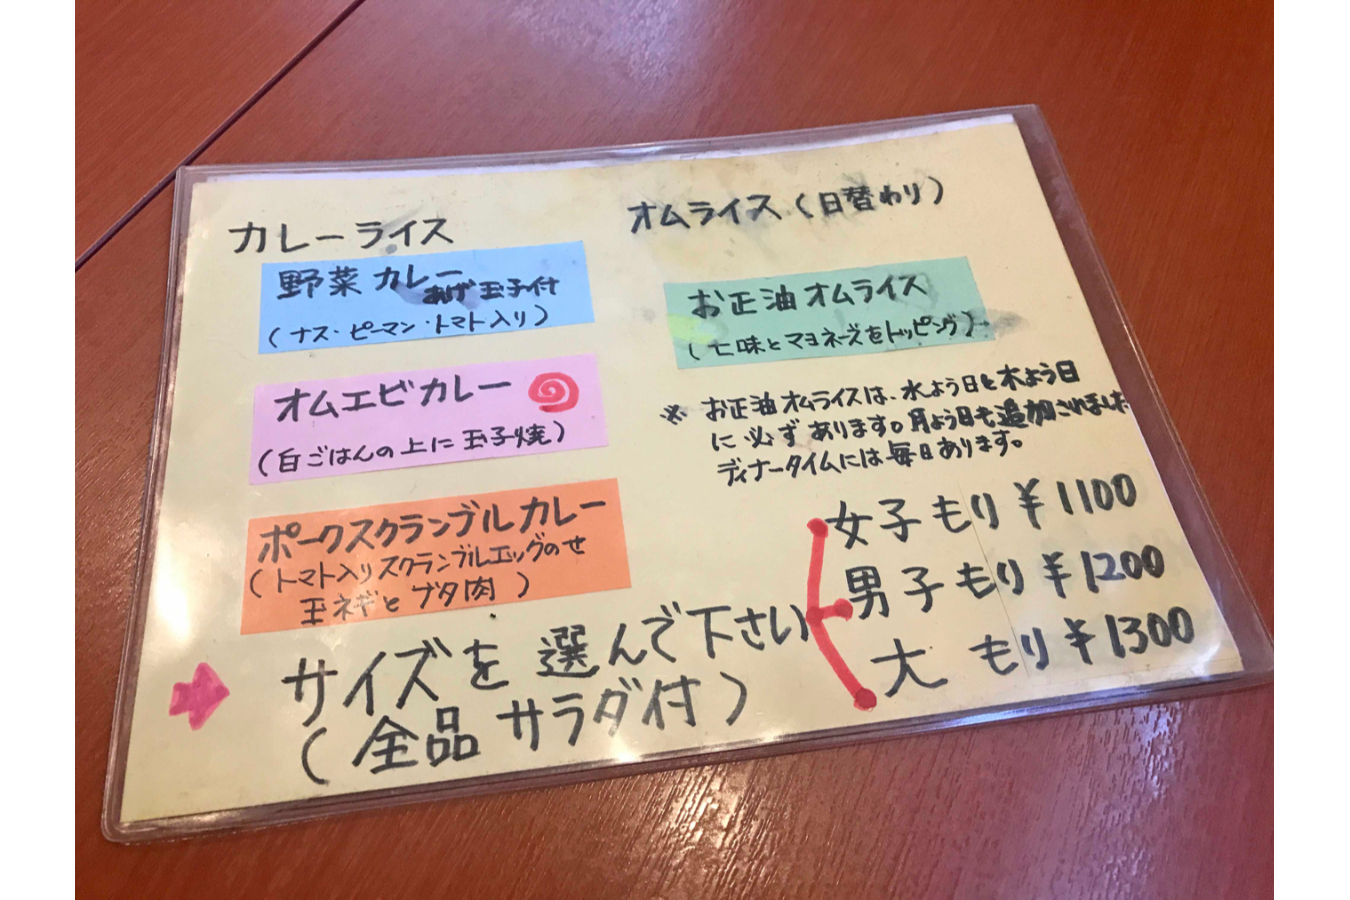 カレーライス
野菜カレー
あげ玉子付
(ナス・ピーマン・トマト入り)
オムエビカレー
(白ごはんの上に玉子焼)
ポークスクランブルカレー
(トマト入りスクランブルエッグのせ
玉ネギとブタ肉)
オムライス(日替わり)
お正油オムライス
(七味とマヨネーズをトッピング)
※お正油オムライスは、水よう日と木よう日
に必ずあります。月よう日も追加されました
ディナータイムには毎日あります。
サイズを選んで下さい
(全品サラダ付)
女子もり¥1100
男子もり¥1200
大もり¥1300